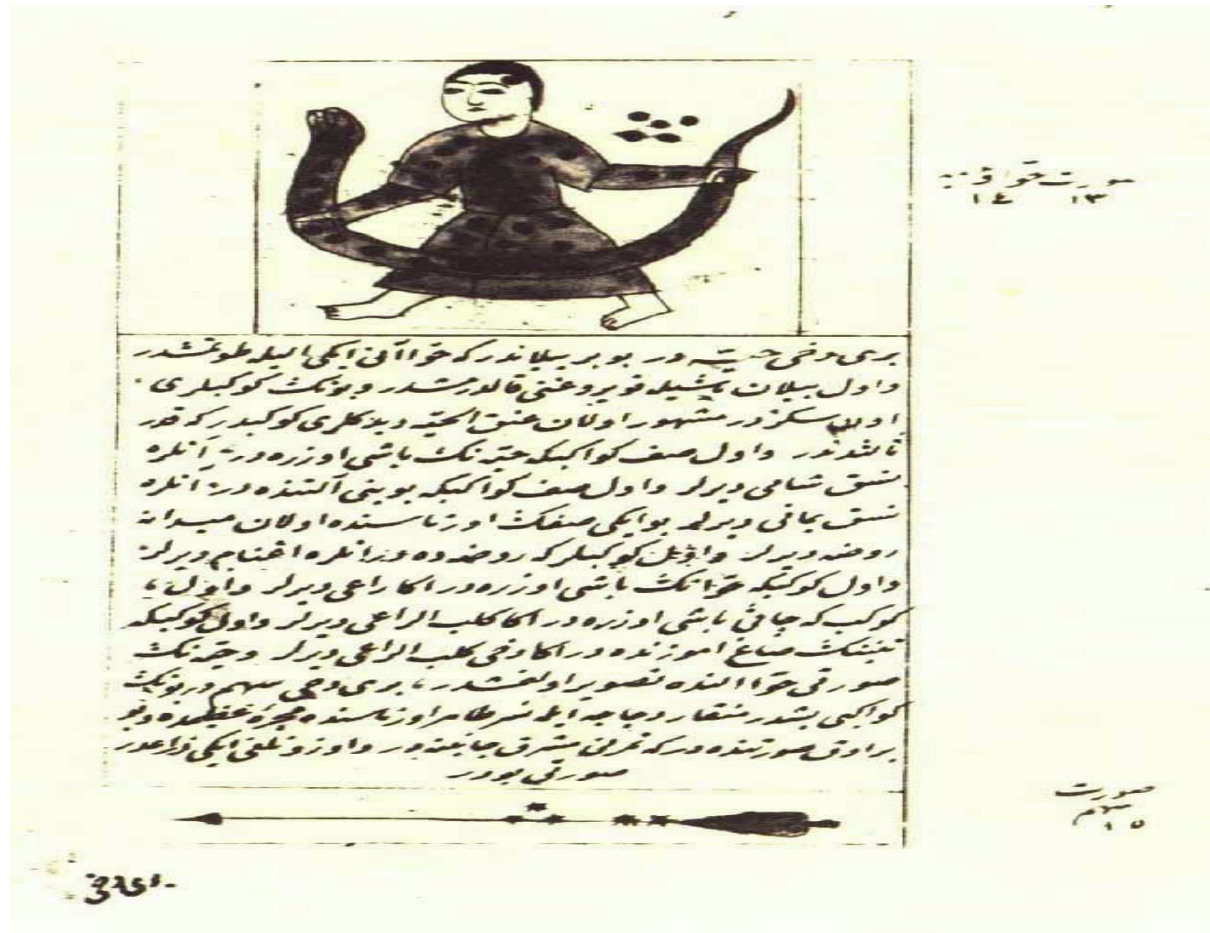 صورت حوا و حیه
١٣ ١٤
بری دخی حیه در بو بر ییلاندر که حوا آنی ایکی الیله طوتمشدر
و اول ییلان باشیله قویروغنی قالدرمشدر و بونك کوکبلری
اون سکزدر مشهور اولان عنق الحیه دیدکلری کوکبدر که قدر
ثالثدندر و اول صف کواکبکه حیه نك باشی اوزره در آنلره
نسق شامی دیرلر و اول صف کواکبکه بوینی آلتنده در آنلره
نسق یمانی دیرلر بو ایکی صفك اورتاسنده اولان میدانه
روضه دیرلر و اول کوکبلر که روضه ده در انلره اغنام دیرلر
و اول کوکبکه حوانك باشی اوزره در اکا راعی دیرلر و اول
کوکب که جاثی باشی اوزره در اکا کلب الراعی دیرلر و اول کوکبکه
صاغ اموزنده در اکا دخی کلب الراعی دیرلر و حیه نك
صورتی حوا النده تصویر اولنمشدر بری دخی سهم در بونك
کواکبی بشدر منقار دجاجه ایله نسر طایر اورتاسنده مجره عظیمه ده در بو
بر اوق صورتنده در که تمرنی مشرق جانبنه در و اوزونلغی ایکی ذراعدر
صورتی بودر
صورت
سهم
١٥